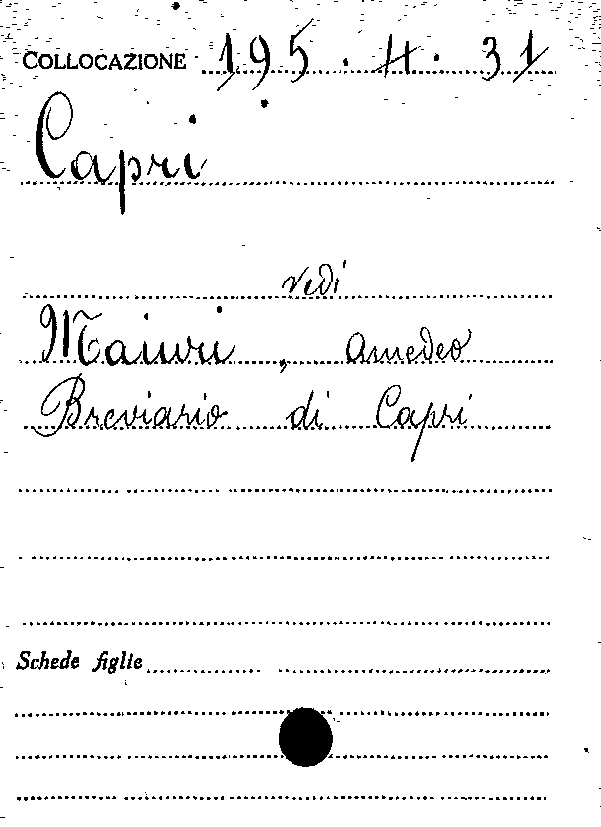 COLLOCAZIONE 195.4.31
Capri
vedi
Maiuri, Amedeo
Breviario di Capri
Schede figlie